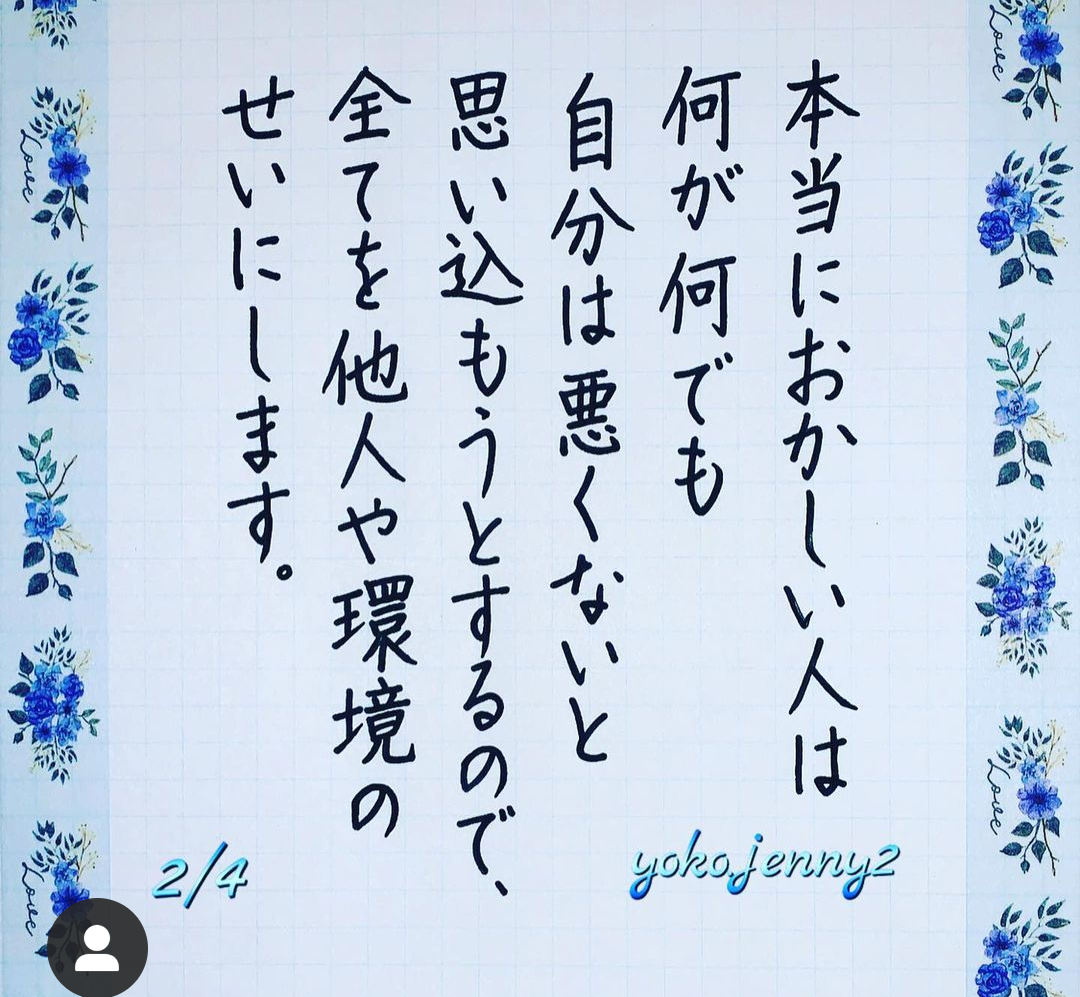 本当におかしい人は
何が何でも
自分は悪くないと
思い込もうとするので、
全てを他人や環境の
せいにします。
yoko.jenny2
2/4
Love
Love
Love
Love
Love